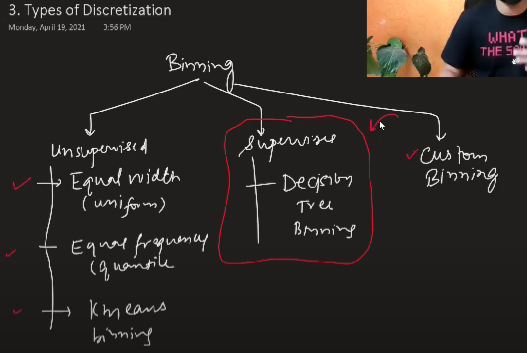 3. Types of Discretization
Monday, April 19, 2021 3:56 PM
WHAT
THE
Binning
Unsupervised
Equal width
(uniform)
Equal frequency
(quantile
Kmeans
binning
Supervised
Decision
Tree
Binning
Custom
Binning